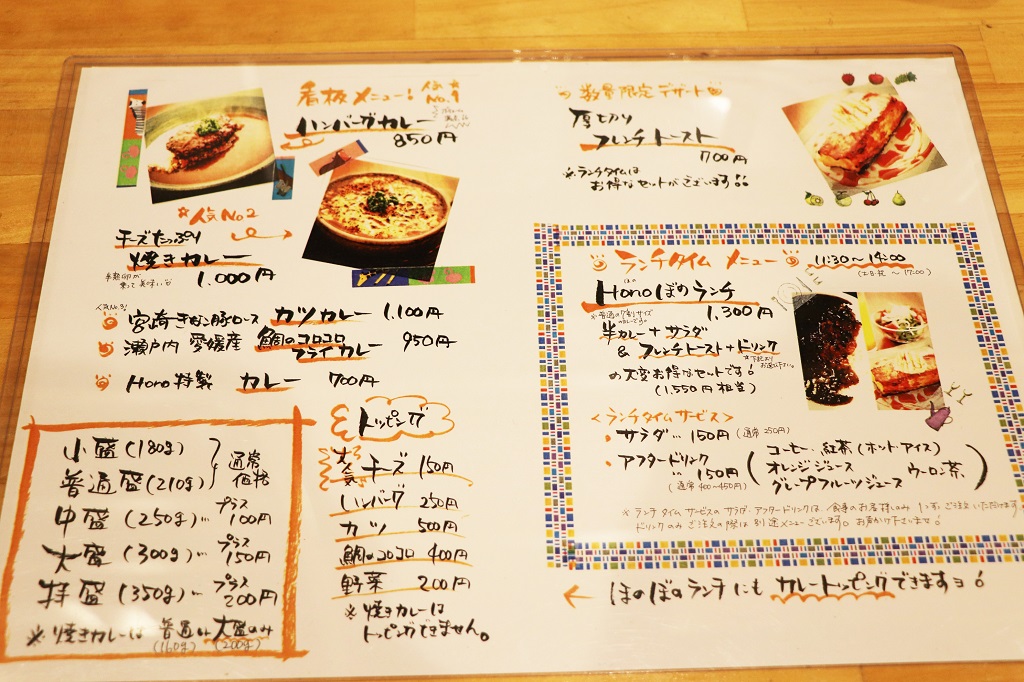 看板メニュー!
人気No.1
ハンバーグカレー
850円
☆人気No2
チーズたっぷり
焼きカレー
半熟卵が
乗って美味い
1.000円
人気No.3!
宮崎きなこ豚ロース カツカレー 1.100円
瀬戸内 愛媛産 鯛のコロコロ
フライカレー 950円
Hono特製 カレー 700円
小盛(180g)
普通盛(210g)
通常
価格
中盛(250g)… プラス
100円
大盛(300g)… プラス
150円
特盛(350g)… プラス
200円
※焼きカレーは 普通 or 大盛のみ
(160g) (200g)
トッピング
人気 チーズ 150円
ハンバーグ 250円
カツ 500円
鯛のコロコロ 400円
野菜 200円
※焼きカレーは
トッピングできません。
数量限定デザート
厚切り
フレンチトースト
700円
※ランチタイムは
お得なセットがございます!!
ランチタイム メニュー 11:30〜14:00
(土日祝 〜17:00)
ほの
Honoぼのランチ
1,300円
※普通の7割サイズ
のカレーです。
半カレー+サラダ
& フレンチトースト+ドリンク
※下記より
お選び下さい
の大変お得なセットです!
(1,550円相当)
<ランチタイムサービス>
・サラダ… 150円 (通常250円)
・アフタードリンク
… 150円
(通常 400〜450円)
コーヒー、紅茶(ホット・アイス)
オレンジジュース ウーロン茶
グレープフルーツジュース
※ランチタイムサービスのサラダ・アフタードリンクは お食事のお客様のみ 1つずつご注文いただけます。
ドリンクのみ ご注文の際は 別途メニューございます。お声かけ下さいませ!
← ほのぼのランチにも カレートッピングできますヨ!